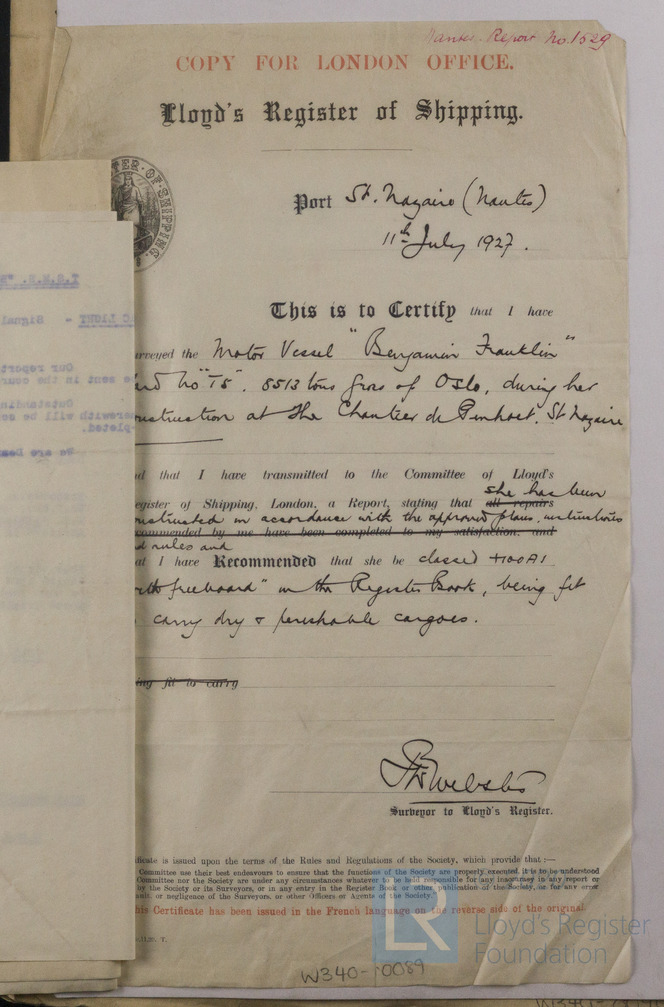 Nantes Report No. 1529
COPY FOR LONDON OFFICE.
Lloyd's Register of Shipping.
TER·OF·SHIPPING
Port St. Nazaire (Nantes)
11th July 1927.
This is to Certify that I have
rveyed the Motor Vessel "Benjamin Franklin"
ard No "T5". 8513 tons gross of Oslo, during her
onstruction at the Chantier de Penhoet, St Nazaire
d that I have transmitted to the Committee of Lloyd's
she has been
egister of Shipping, London, a Report, stating that all repairs
onstructed in accordance with the approved plans, instructions
ecommended by me have been completed to my satisfaction, and
d rules and
at I have Recommended that she be classed +100A1
with freeboard" in the Register Book, being fit
carry dry & perishable cargoes.
ing fit to carry
Webster
Surveyor to Lloyd's Register.
ificate is issued upon the terms of the Rules and Regulations of the Society, which provide that :—
Committee use their best endeavours to ensure that the functions of the Society are properly executed, it is to be understood
Committee nor the Society are under any circumstances whatever to be held responsible for any inaccuracy in any report or
by the Society or its Surveyors, or in any entry in the Register Book or other publication of the Society, or for any error
or negligence of the Surveyors, or other Officers or Agents of the Society."
his Certificate has been issued in the French language on the reverse side of the original
LR
Lloyd's Register
Foundation
W340-0089